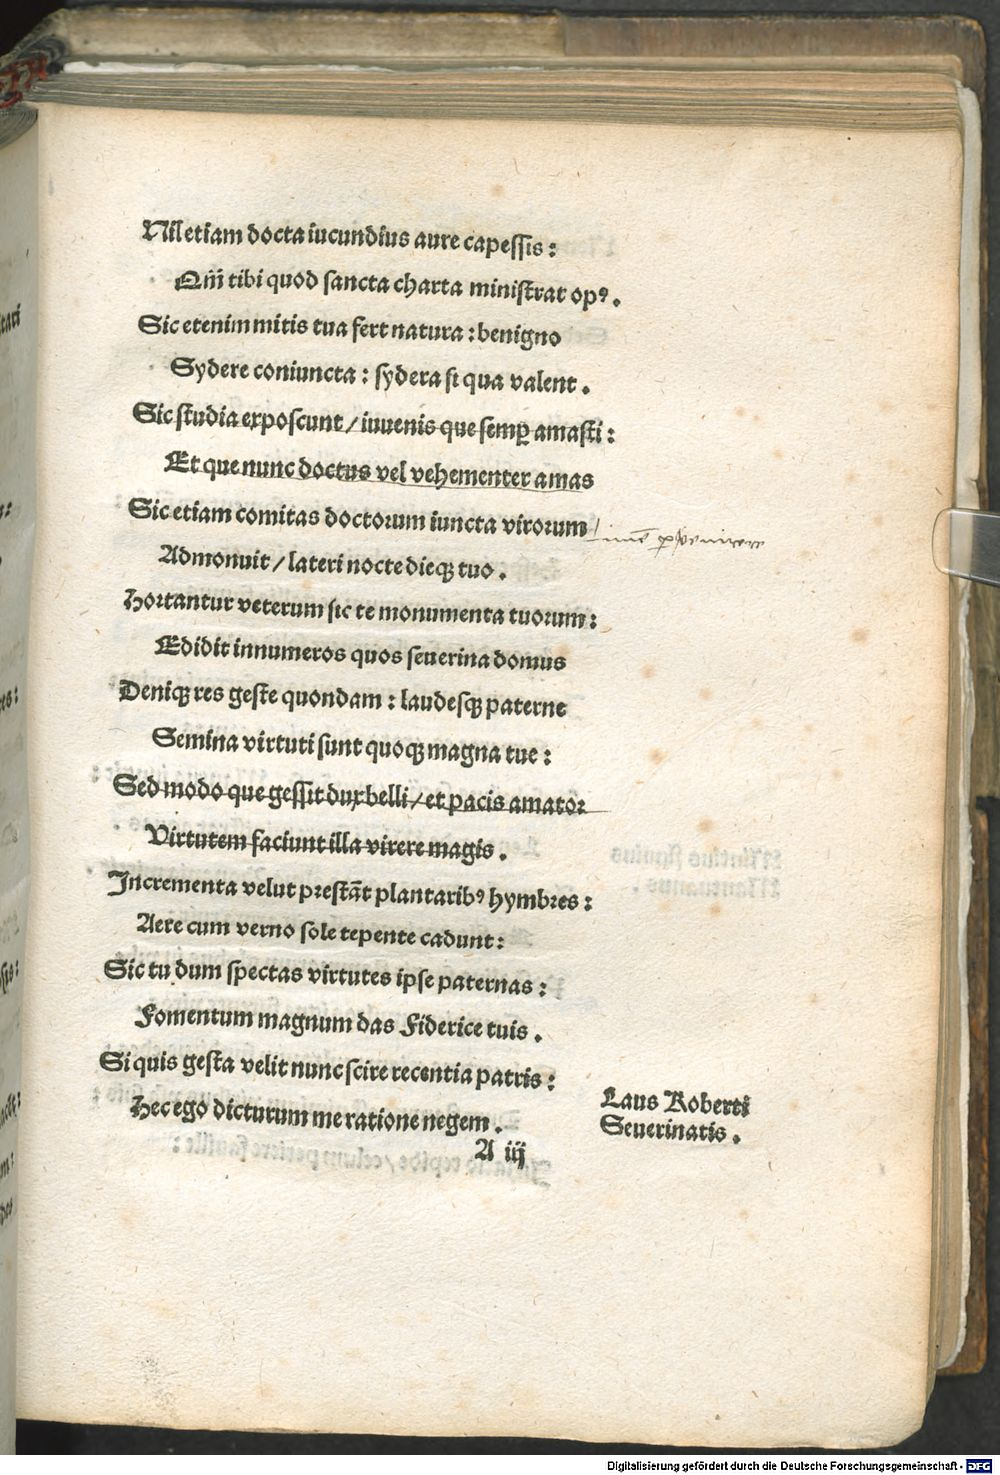 Nil etiam docta iucundius aure capessis:
Qm̄ tibi quod sancta charta ministrat opꝰ.
Sic etenim mitis tua fert natura: benigno
Sydere coniuncta: sydera si qua valent.
Sic studia exposcunt/ iuuenis que semꝑ amasti:
Et que nunc doctus vel vehementer amas
Sic etiam comitas doctorum iuncta virorum
Admonuit/ lateri nocte dieqꝫ tuo.
Hortantur veterum sic te monumenta tuorum:
Edidit innumeros quos seuerina domus
Deniqꝫ res geste quondam: laudesqꝫ paterne
Semina virtuti sunt quoqꝫ magna tue:
Sed modo que gessit dux belli/ et pacis amator
Virtutem faciunt illa virere magis.
Incrementa velut prestāt plantaribꝰ hymbres:
Aere cum verno sole tepente cadunt:
Sic tu dum spectas virtutes ipse paternas:
Fomentum magnum das Fiderice tuis.
Si quis gesta velit nunc scire recentia patris:
Hec ego dicturum me ratione negem.
Laus Roberti
Seuerinatis.
A iij
Digitalisierung gefördert durch die Deutsche Forschungsgemeinschaft - DFG